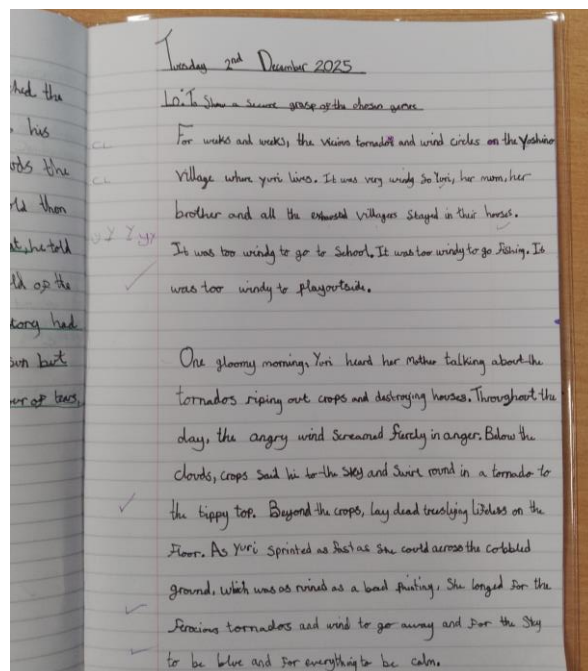 ched the
his
ods the
old thon
at, he told
ld of the
tory had
son but
er of tears,
CL
CL
Y Y y
Tuesday 2nd December 2025
Lo: To Show a Secure grasp of the chosen genre
For weeks and weeks, the vicius tornados and wind circles on the Yoshino
village where yuri lives. It was very windy so Yuri, her mum, her
brother and all the exhausted villagers stayed in their houses.
It was too windy to go to School. It was too windy to go fishing. It
was too windy to playoutside.
One gloomy morning, Yuri heard her Mother talking about the
tornados riping out crops and destroying houses. Throughout the
day, the angry wind screamed fircly in anger. Below the
clouds, crops said hi to the sky and Swirl round in a tornado to
the tippy top. Beyond the crops, lay dead treeslying lifeless on the
floor. As Yuri sprinted as fast as she could across the cobbled
ground, which was as ruined as a bad painting, She longed for the
ferocious tornados and wind to go away and for the Sky
to be blue and for everything to be calm.